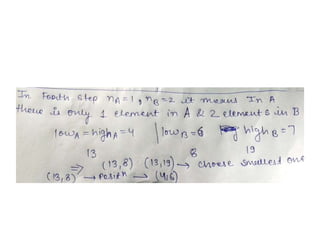 In Fourth step nA=1, nB=2 it means In A
there is only 1 element in A & 2 elements in B
lowA = highA = 4 | lowB = 6 highB = 7
13 8 19
⇒ (13,8) (13,19) → choose smallest one
(13,8) → positn → (4,6)